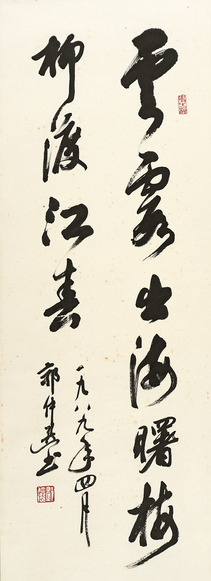 云霞出海曙梅
柳渡江春
一九八九年四月
郭仲選书